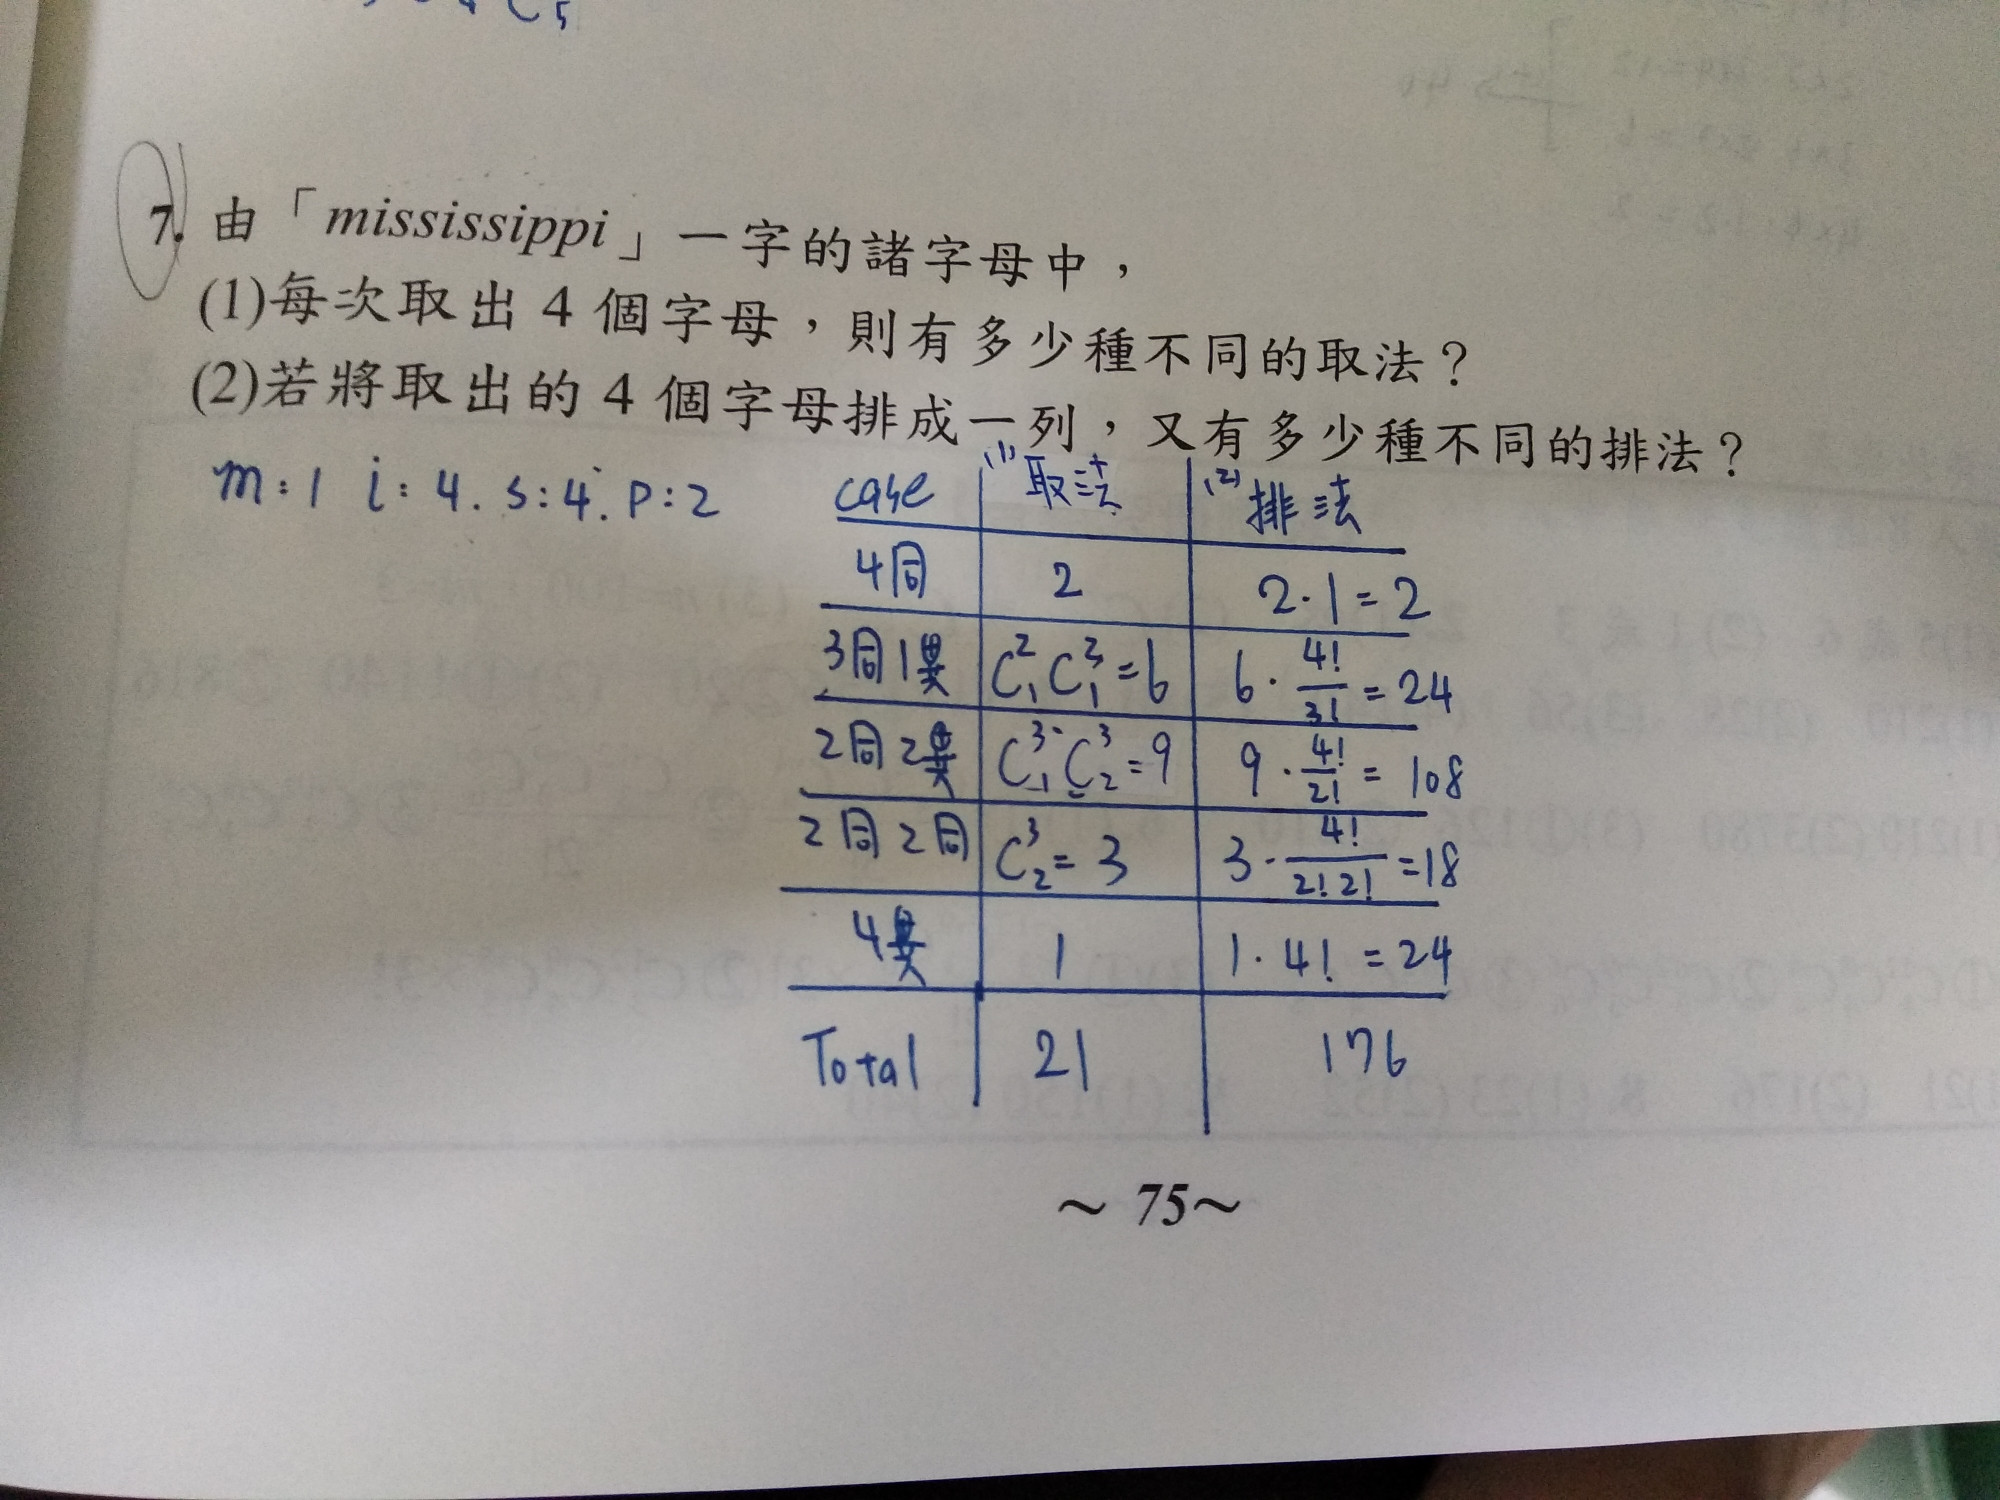 7. 由「mississippi」一字的諸字母中，
(1)每次取出 4 個字母，則有多少種不同的取法？
(2)若將取出的 4 個字母排成一列，又有多少種不同的排法？
m:1 i:4. s:4. p:2
case (1)取法 (2)排法
4同 2 2·1=2
3同1異 C²₁C³₁=6 6·4!/3!=24
2同2異 C³₁C³₂=9 9·4!/2!=108
2同2同 C³₂=3 3·4!/2!2!=18
4異 1 1·4!=24
Total 21 176
～75～